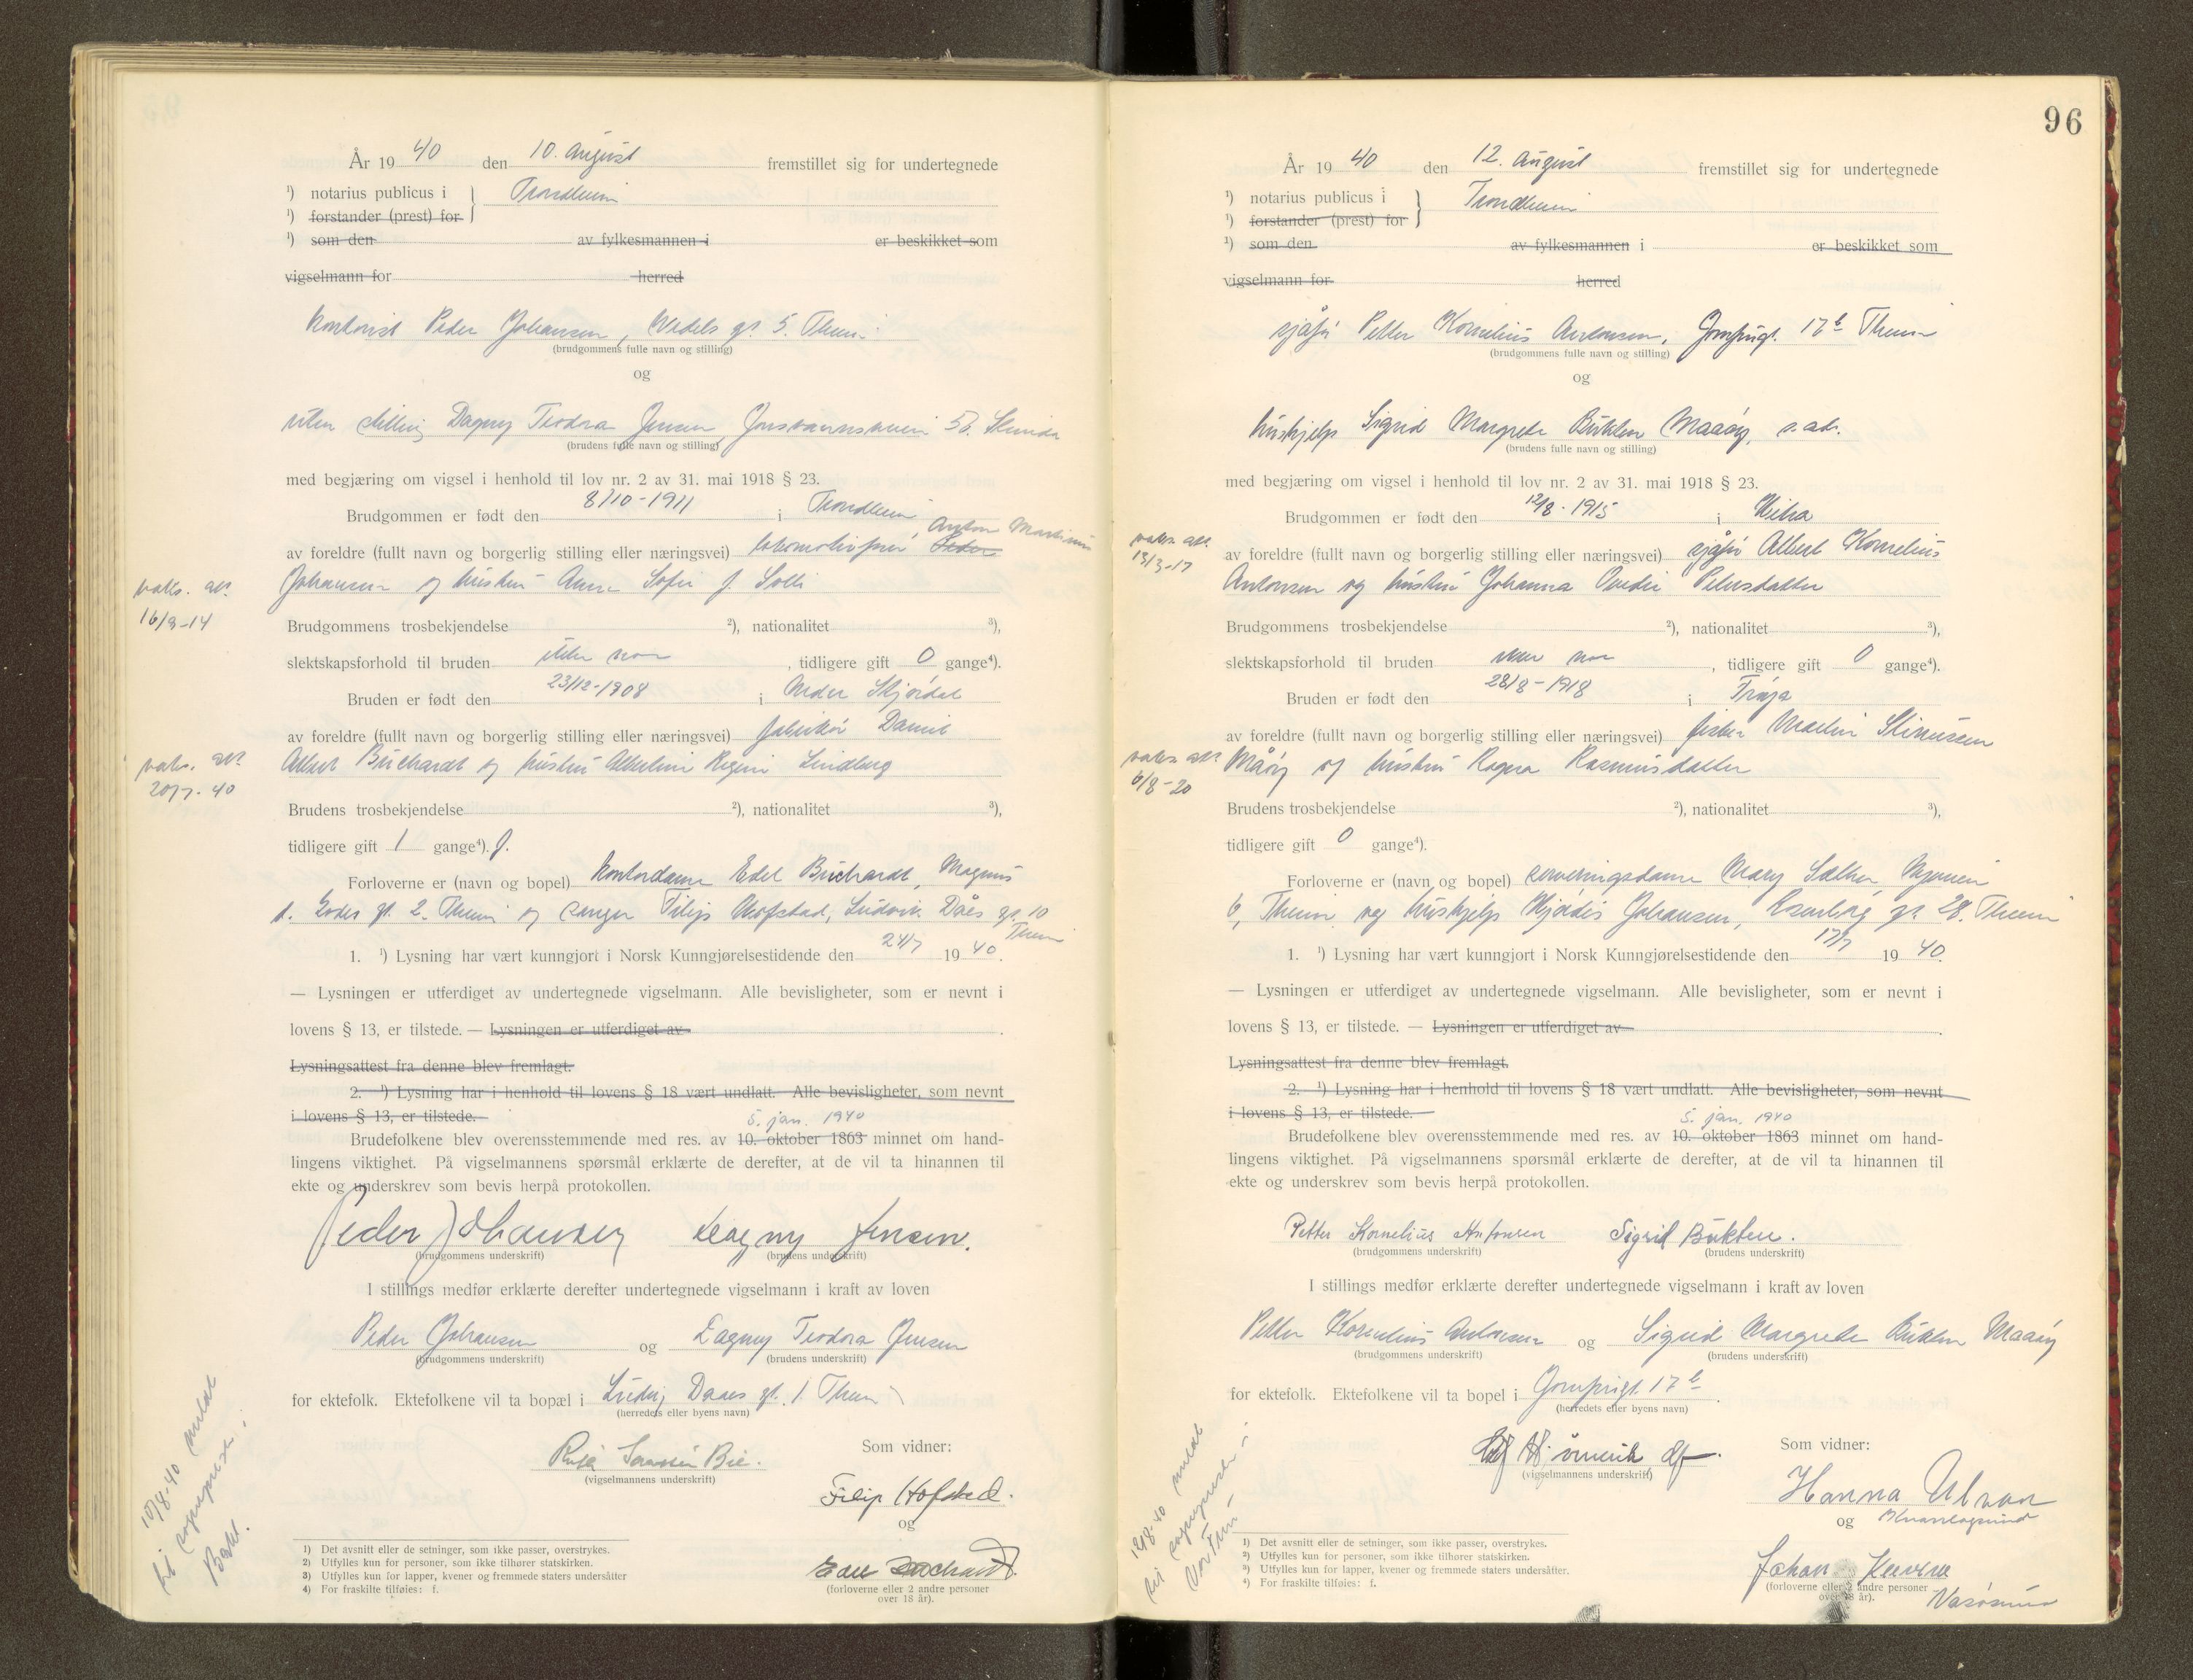 År 19 40 den 10. august fremstillet sig for undertegnede
¹) notarius publicus i } Trondheim
¹) forstander (prest) for
¹) som den av fylkesmannen i er beskikket som
vigselmann for herred
Kontorist Peder Johansen, Wedels gt. 5. Theim
(brudgommens fulle navn og stilling)
og
uten stilling Dagny Teodora Jensen, Jonsvannsveien 53. Strinda
(brudens fulle navn og stilling)
med begjæring om vigsel i henhold til lov nr. 2 av 31. mai 1918 § 23.
Brudgommen er født den 8/10-1911 i Trondheim
Anton Martinus
av foreldre (fullt navn og borgerlig stilling eller næringsvei) lokomotivfører Peder
Johansen og hustru Anna Sofie f. Solli
vaks. att.
16/9-14
Brudgommens trosbekjendelse ²), nationalitet ³),
slektskapsforhold til bruden uten nær, tidligere gift 0 gange⁴).
Bruden er født den 23/12-1908 i Nedre Stjørdal
av foreldre (fullt navn og borgerlig stilling eller næringsvei) fabrikkar Daniel
Albert Buchardt og hustru Regine Lindberg
vaks. att.
20/7-40
Brudens trosbekjendelse ²), nationalitet ³),
tidligere gift 1 gange⁴). f.
Forloverne er (navn og bopel) Kontordame Edel Buchardt, Magnus
d. Godes gt. 2. Theim og sanger Filip Hofstad, Ludvik Daes gt. 10
Theim
1. ¹) Lysning har vært kunngjort i Norsk Kunngjørelsestidende den 24/7 19 40.
— Lysningen er utferdiget av undertegnede vigselmann. Alle bevisligheter, som er nevnt i
lovens § 13, er tilstede. — Lysningen er utferdiget av
Lysningsattest fra denne blev fremlagt.
2. ¹) Lysning har i henhold til lovens § 18 vært undlatt. Alle bevisligheter, som nevnt
i lovens § 13, er tilstede.
5. jan. 1940
Brudefolkene blev overensstemmende med res. av 10. oktober 1863 minnet om hand-
lingens viktighet. På vigselmannens spørsmål erklærte de derefter, at de vil ta hinannen til
ekte og underskrev som bevis herpå protokollen.
Peder Johansen Dagny Jensen.
(brudgommens underskrift) (brudens underskrift)
I stillings medfør erklærte derefter undertegnede vigselmann i kraft av loven
Peder Johansen og Dagny Teodora Jensen
(brudgommens underskrift) (brudens underskrift)
for ektefolk. Ektefolkene vil ta bopæl i Ludvig Daaes gt. 1 Theim
(herredets eller byens navn)
Som vidner:
(vigselmannens underskrift)
Filip Hofstad.
og
Edel Buchardt
(forloverne eller 2 andre personer
over 18 år).
10/8-40 meldt
til sogneprest i
Bakl.
1) Det avsnitt eller de setninger, som ikke passer, overstrykes.
2) Utfylles kun for personer, som ikke tilhører statskirken.
3) Utfylles kun for lapper, kvener og fremmede staters undersåtter
4) For fraskilte tilføies: f.
96
År 19 40 den 12. august fremstillet sig for undertegnede
¹) notarius publicus i } Trondheim
¹) forstander (prest) for
¹) som den av fylkesmannen i er beskikket som
vigselmann for herred
sjåfør Petter Kornelius Antonsen, Jomfrugt. 17b Theim
(brudgommens fulle navn og stilling)
og
hushjelp Sigrid Margrete Bukten Maaøy, s.ad.
(brudens fulle navn og stilling)
med begjæring om vigsel i henhold til lov nr. 2 av 31. mai 1918 § 23.
Brudgommen er født den 12/8-1915 i Hitra
vaks. att.
13/3-17
av foreldre (fullt navn og borgerlig stilling eller næringsvei) sjåfør Albert Kornelius
Antonsen og hustru Johanna Ovedie Petersdatter
Brudgommens trosbekjendelse ²), nationalitet ³),
slektskapsforhold til bruden uten nær, tidligere gift 0 gange⁴).
Bruden er født den 28/8-1918 i Frøya
av foreldre (fullt navn og borgerlig stilling eller næringsvei) fisker
vaks. att.
6/8-20
Måøy og hustru Ragna Rasmusdatter
Brudens trosbekjendelse ²), nationalitet ³),
tidligere gift 0 gange⁴).
Forloverne er (navn og bopel) serveringsdame Mary Sæther,
6, Theim og hushjelp Hjørdis Johansen, Rosenborg gt. 28. Theim
1. ¹) Lysning har vært kunngjort i Norsk Kunngjørelsestidende den 17/7 19 40.
— Lysningen er utferdiget av undertegnede vigselmann. Alle bevisligheter, som er nevnt i
lovens § 13, er tilstede. — Lysningen er utferdiget av
Lysningsattest fra denne blev fremlagt.
2. ¹) Lysning har i henhold til lovens § 18 vært undlatt. Alle bevisligheter, som nevnt
i lovens § 13, er tilstede.
5. jan. 1940
Brudefolkene blev overensstemmende med res. av 10. oktober 1863 minnet om hand-
lingens viktighet. På vigselmannens spørsmål erklærte de derefter, at de vil ta hinannen til
ekte og underskrev som bevis herpå protokollen.
Petter Kornelius Antonsen Sigrid Bukten.
(brudgommens underskrift) (brudens underskrift)
I stillings medfør erklærte derefter undertegnede vigselmann i kraft av loven
Petter Kornelius Antonsen og Sigrid Margrete Bukten Maaøy
(brudgommens underskrift) (brudens underskrift)
for ektefolk. Ektefolkene vil ta bopel i Jomfrugt. 17b.
(herredets eller byens navn)
Som vidner:
(vigselmannens underskrift)
Hanna Ulvan
og
Johan
(forloverne eller 2 andre personer
over 18 år).
12/8-40 meldt
til sogneprest i
1) Det avsnitt eller de setninger, som ikke passer, overstrykes.
2) Utfylles kun for personer, som ikke tilhører statskirken.
3) Utfylles kun for lapper, kvener og fremmede staters undersåtter.
4) For fraskilte tilføies: f.